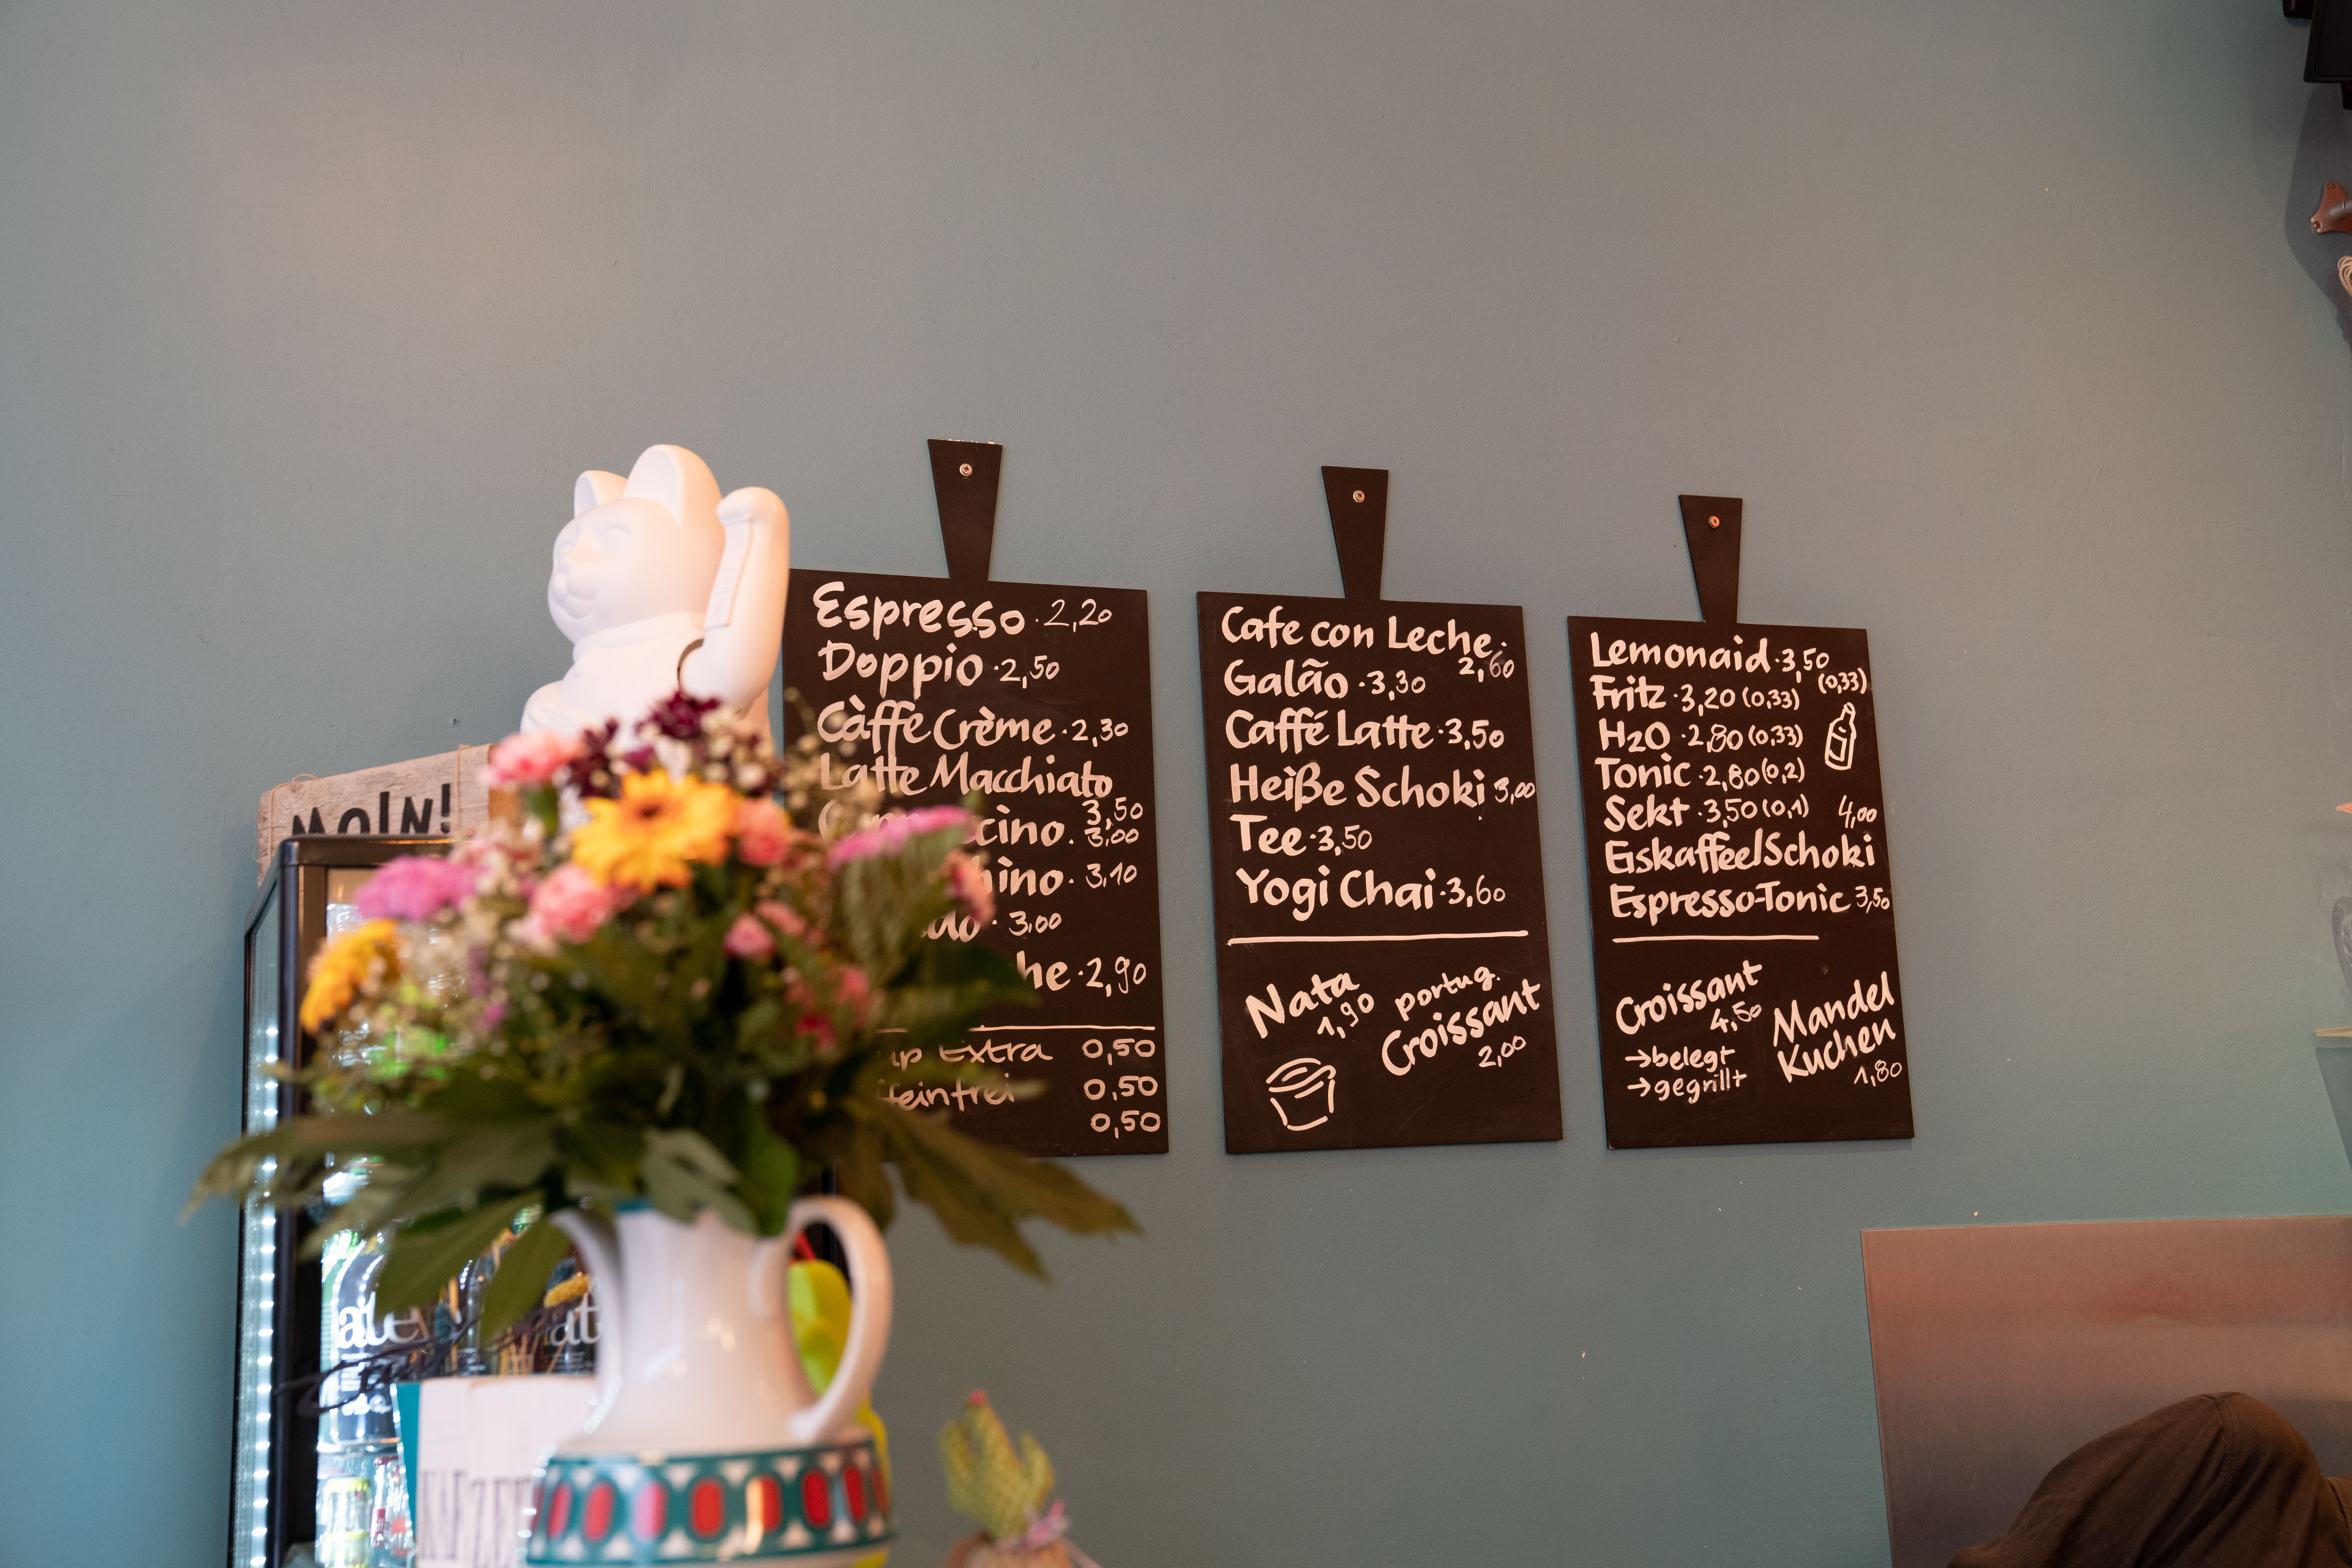 MOIN!
Espresso · 2,20
Doppio · 2,50
Càffe Crème · 2,30
Latte Macchiato
3,50
3,00
3,10
3,00
2,90
Extra 0,50
0,50
0,50
Cafe con Leche ·
2,60
Galão · 3,30
Caffé Latte · 3,50
Heiße Schoki 3,00
Tee · 3,50
Yogi Chai · 3,60
Nata
1,90
portug.
Croissant
2,00
Lemonaid · 3,50
(0,33)
Fritz · 3,20 (0,33)
H2O · 2,80 (0,33)
Tonic · 2,80 (0,2)
Sekt · 3,50 (0,1)
4,00
Eiskaffee/Schoki
Espresso-Tonic 3,50
Croissant
4,50
→ belegt
→ gegrillt
Mandel
Kuchen
1,80